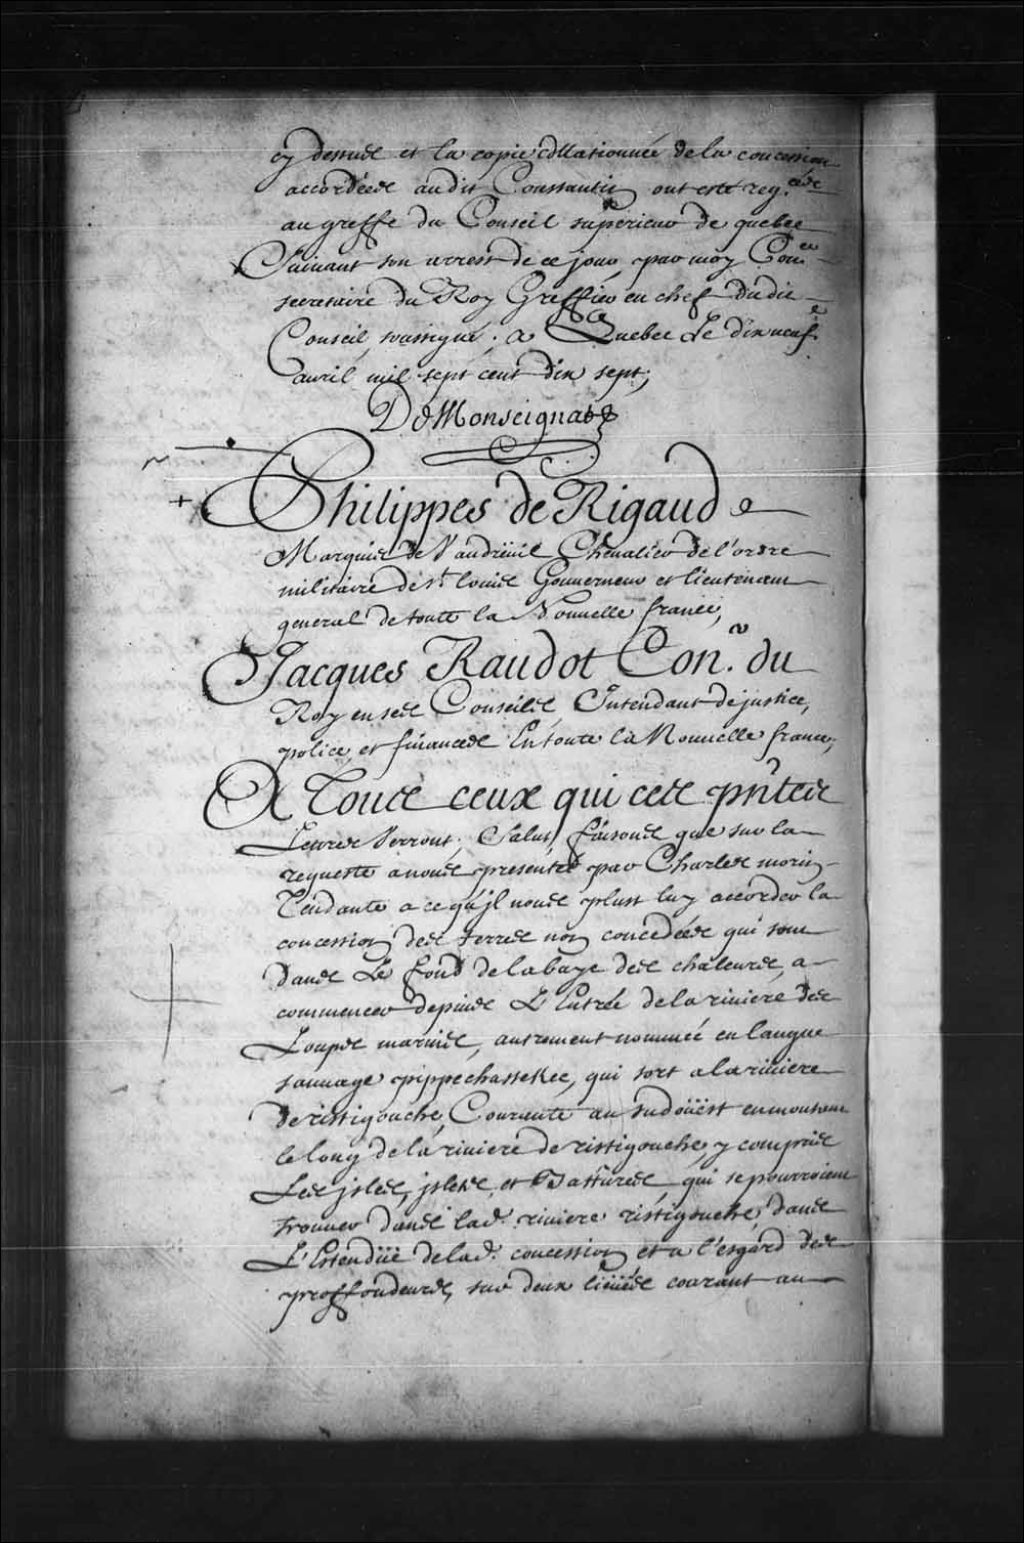 cy dessus et la copie collationnée de la concession
accordées audit Constantin ont esté reg.ées
au greffe du Conseil superieur de quebec
Suivant son arrest de ce jour, par moy Con.er
secretaire du Roy Greffier en chef dudit
Conseil, soussigné, a Quebec le dix neufe
avril mil sept cent dix sept;
De Monseignat
Philippes de Rigaud
Marquis de Vaudreüil Chevalier de l'ordre
militaire de st. louis Gouverneur et lieutenant
general de toute la Nouvelle france,
Jacques Raudot Con.er du
Roy en ses Conseils Intendant de justice,
police, et finances En toute la Nouvelle france,
A Tous ceux qui ces pntes
Lettres Verront; Salut, faisons que sur la
requeste a nous presentée par Charles morin
Tendante a ce qu'jl nous plust luy accorder la
concession des terres non concedées qui sont
dans Le fond de la baye des chaleurs, a
commencer depuis L'Entrée de la riviere des
Loups marins, autrement nommée en langue
sauvage pippechassekec, qui sort a la riviere
de ristigouche, Courante au sudoüest en montant
le long de la riviere de ristigouche, y compris
Les jsles, jslets, et Battures, qui se pourroient
trouver dans lad. riviere ristigouche, dans
L'Estendüe de lad. concession et a l'esgard des
proffondeurs, sur deux liëues courant au